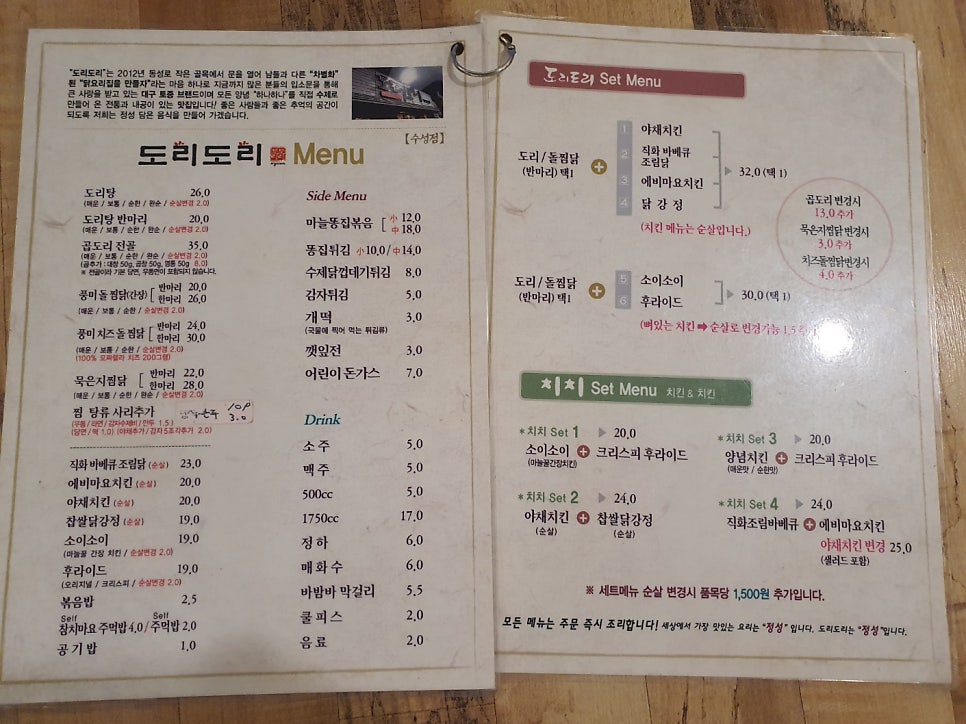 "도리도리"는 2012년 동성로 작은 골목에서 문을 열어 남들과 다른 "차별화"
된 "닭요리집을 만들자"라는 마음 하나로 지금까지 많은 분들의 입소문을 통해
큰 사랑을 받고 있는 대구 토종 브랜드이며 모든 양념 "하나하나"를 직접 수제로
만들어 온 전통과 내공이 있는 맛집입니다! 좋은 사람들과 좋은 추억의 공간이
되도록 저희는 정성 담은 음식을 만들어 가겠습니다.
[수성점]
도리도리 Menu
도리탕 26.0
(매운 / 보통 / 순한 / 완순 / 순살변경 2.0)
도리탕 반마리 20.0
(매운 / 보통 / 순한 / 완순 / 순살변경 2.0)
곱도리 전골 35.0
(매운 / 보통 / 순한 / 완순 / 순살변경 2.0)
(곱추가 : 대창 50g, 곱창 50g, 염통 50g 8.0)
※ 전골이라 기본 당면, 우동면이 포함되지 않습니다.
풍미 돌 찜닭(간장) 반마리 20.0
한마리 26.0
(매운 / 보통 / 순한 / 순살변경 2.0)
풍미 치즈 돌 찜닭 반마리 24.0
한마리 30.0
(매운 / 보통 / 순한 / 순살변경 2.0)
(100% 모짜렐라 치즈 200그램)
묵은지찜닭 반마리 22.0
한마리 28.0
(매운 / 보통 / 순한 / 완순 / 순살변경 2.0)
찜 탕류 사리추가 3.0
(우동 / 라면 / 감자수제비 / 만두 1.5)
(당면 / 떡 1.0) (야채추가 / 감자 5조각추가 2.0)
직화 바베큐 조림닭 (순살) 23.0
에비마요치킨 (순살) 20.0
야채치킨 (순살) 20.0
찹쌀닭강정 (순살) 19.0
소이소이 19.0
(마늘꿀 간장 치킨 / 순살변경 2.0)
후라이드 19.0
(오리지널 / 크리스피 / 순살변경 2.0)
볶음밥 2.5
Self Self
참치마요 주먹밥 4.0 / 주먹밥 2.0
공기밥 1.0
Side Menu
마늘똥집볶음 小 12.0
中 18.0
똥집튀김 小 10.0 / 中 14.0
수제닭껍데기튀김 8.0
감자튀김 5.0
개떡 3.0
(국물에 찍어 먹는 튀김류)
깻잎전 3.0
어린이 돈가스 7.0
Drink
소주 5.0
맥주 5.0
500cc 5.0
1750cc 17.0
정하 6.0
매화수 6.0
바밤바 막걸리 5.5
쿨피스 2.0
음료 2.0
도리도리 Set Menu
도리 / 돌찜닭
(반마리) 택1
+
1 야채치킨
2 직화 바베큐
조림닭
3 에비마요치킨
4 닭강정
▶ 32.0 (택 1)
(치킨 메뉴는 순살입니다.)
곱도리 변경시
13.0 추가
묵은지찜닭 변경시
3.0 추가
치즈돌찜닭변경시
4.0 추가
도리 / 돌찜닭
(반마리) 택1
+
5 소이소이
6 후라이드
▶ 30.0 (택 1)
(뼈있는 치킨 ➡ 순살로 변경가능 1.5 추가
치치 Set Menu 치킨 & 치킨
*치치 Set 1 ▶ 20.0
소이소이 + 크리스피 후라이드
(마늘꿀간장치킨)
*치치 Set 2 ▶ 24.0
야채치킨 + 찹쌀닭강정
(순살) (순살)
*치치 Set 3 ▶ 20.0
양념치킨 + 크리스피후라이드
(매운맛 / 순한맛)
*치치 Set 4 ▶ 24.0
직화조림바베큐 + 에비마요치킨
야채치킨 변경 25.0
(샐러드 포함)
※ 세트메뉴 순살 변경시 품목당 1,500원 추가입니다.
모든 메뉴는 주문 즉시 조리합니다! 세상에서 가장 맛있는 요리는 "정성" 입니다. 도리도리는 "정성"입니다.